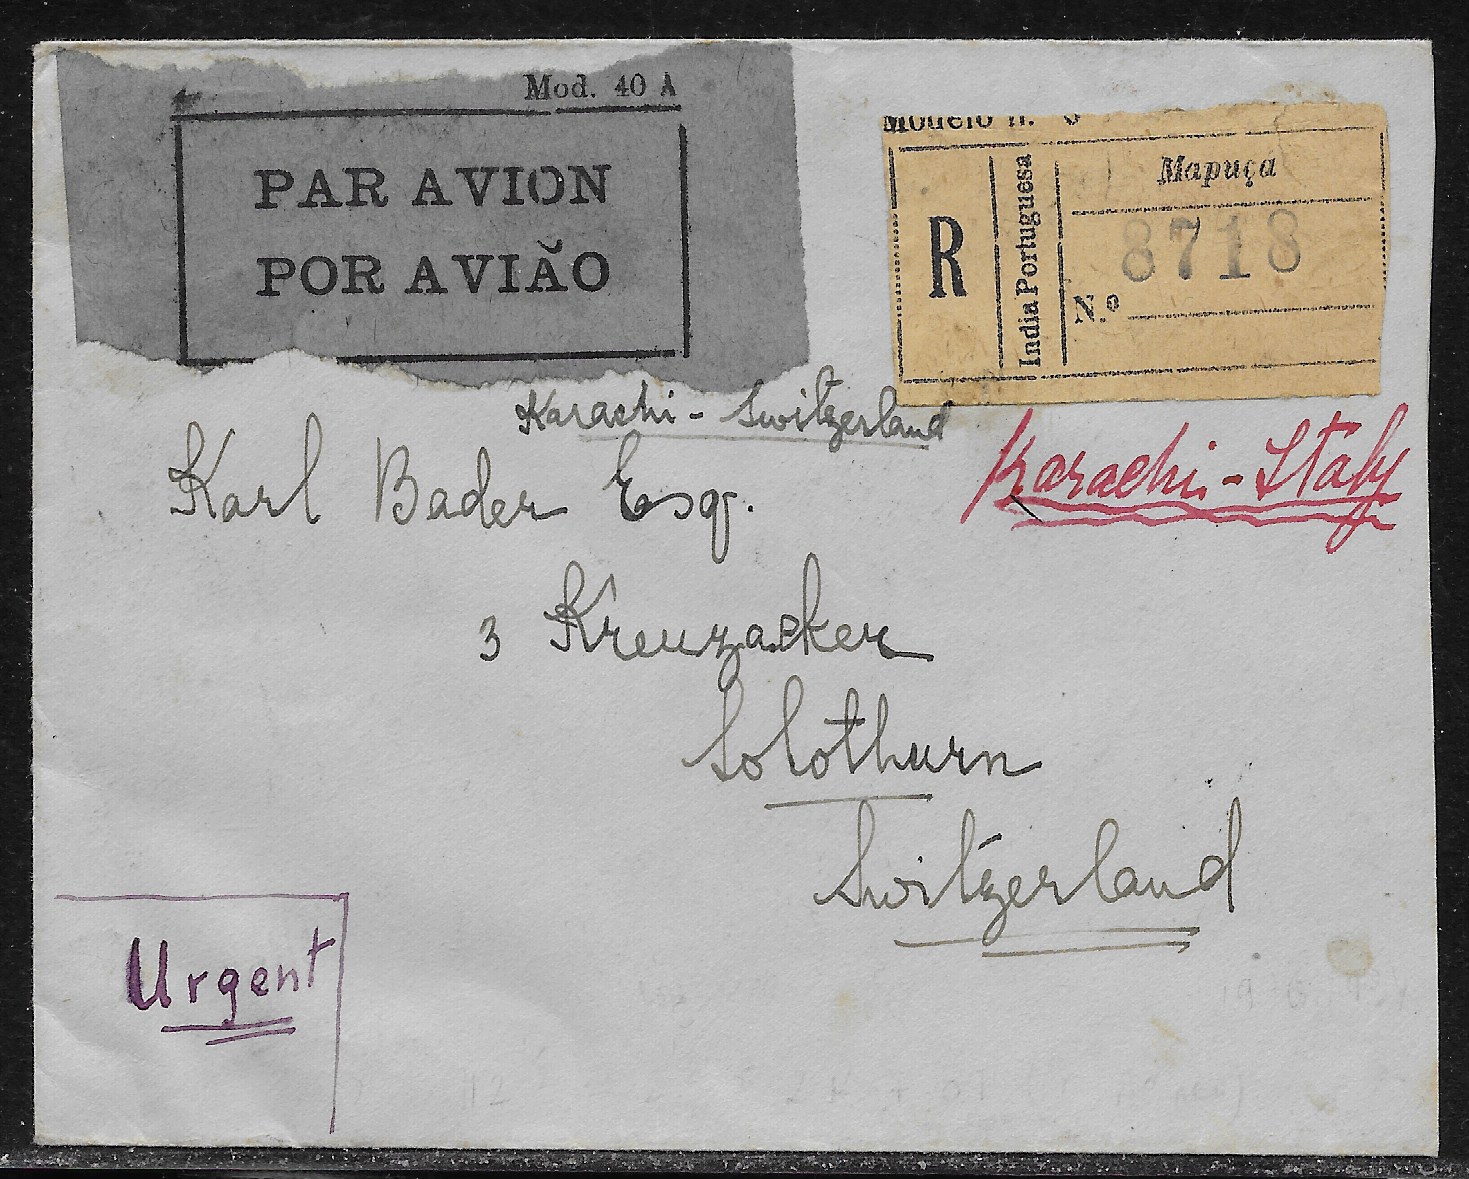 Mod. 40 A
PAR AVION
POR AVIÃO
R
India Portuguesa
Mapuça
8718
N.º
Karachi - Switzerland
Karachi - Italy
Karl Bader Esq.
3 Kreuzacker
Solothurn
Switzerland
Urgent